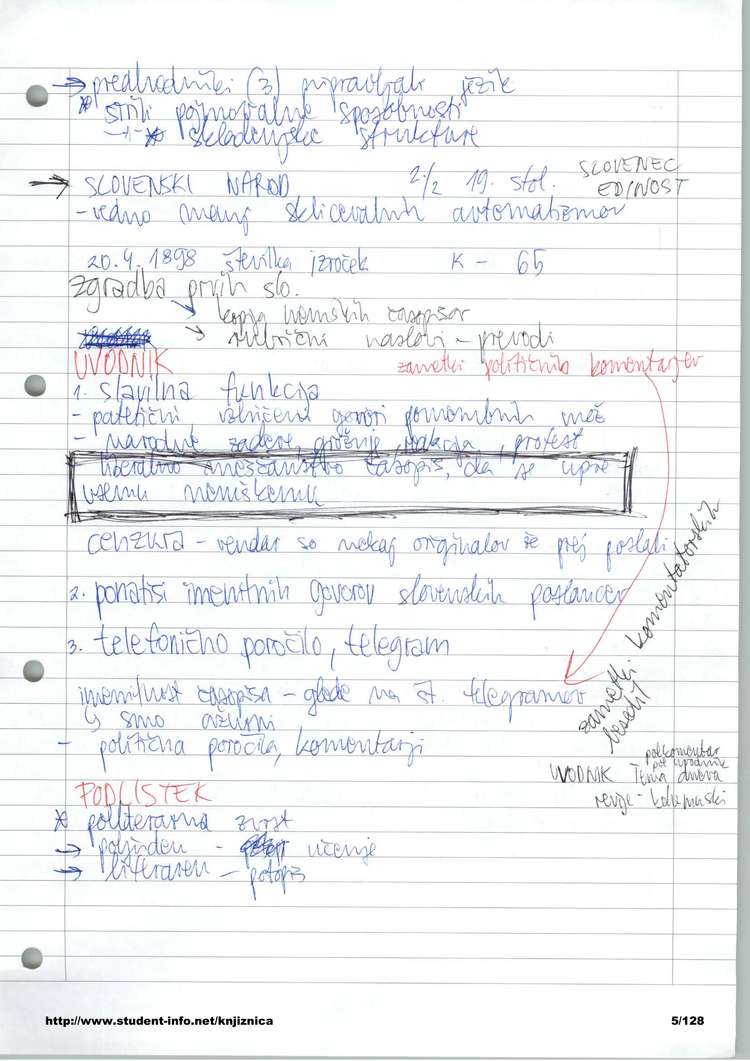 → predhodniki (3) pripravljali jezik
* širili pojmovalne sposobnosti
-"- * skladenjske strukture
→ SLOVENSKI NAROD 2./2 19. stol. SLOVENEC
EDINOST
- vedno manj sklicevalnih avtomatizmov
20. 4. 1898 številka izroček K - 65
Zgradba prvih slo.
↘ kopija nemških časopisov
↘ rubrični naslovi - prevodi
UVODNIK zametki političnih komentarjev
1. slavilna funkcija
- patetični vzneseni govori pomembnih mož
- narodne zadeve, grožnje, reakcija, protest
liberalno meščanstvo časopis, da se upre
vsemu nemškemu
cenzura - vendar so nekaj originalov že prej poslali
2. ponatisi imenitnih govorov slovenskih poslancev
3. telefonično poročilo, telegram
imenitnost časopisa - glede na št. telegramov
↳ smo ažurni
zametki komentatorskih
besedil
- politična poročila, komentarji
polkomentar
UVODNIK Tema dneva
revije - kolumnski
PODLISTEK
* polliterarna zvrst
→ poljuden - učenje
→ literaren - potopis
http://www.student-info.net/knjiznica 5/128